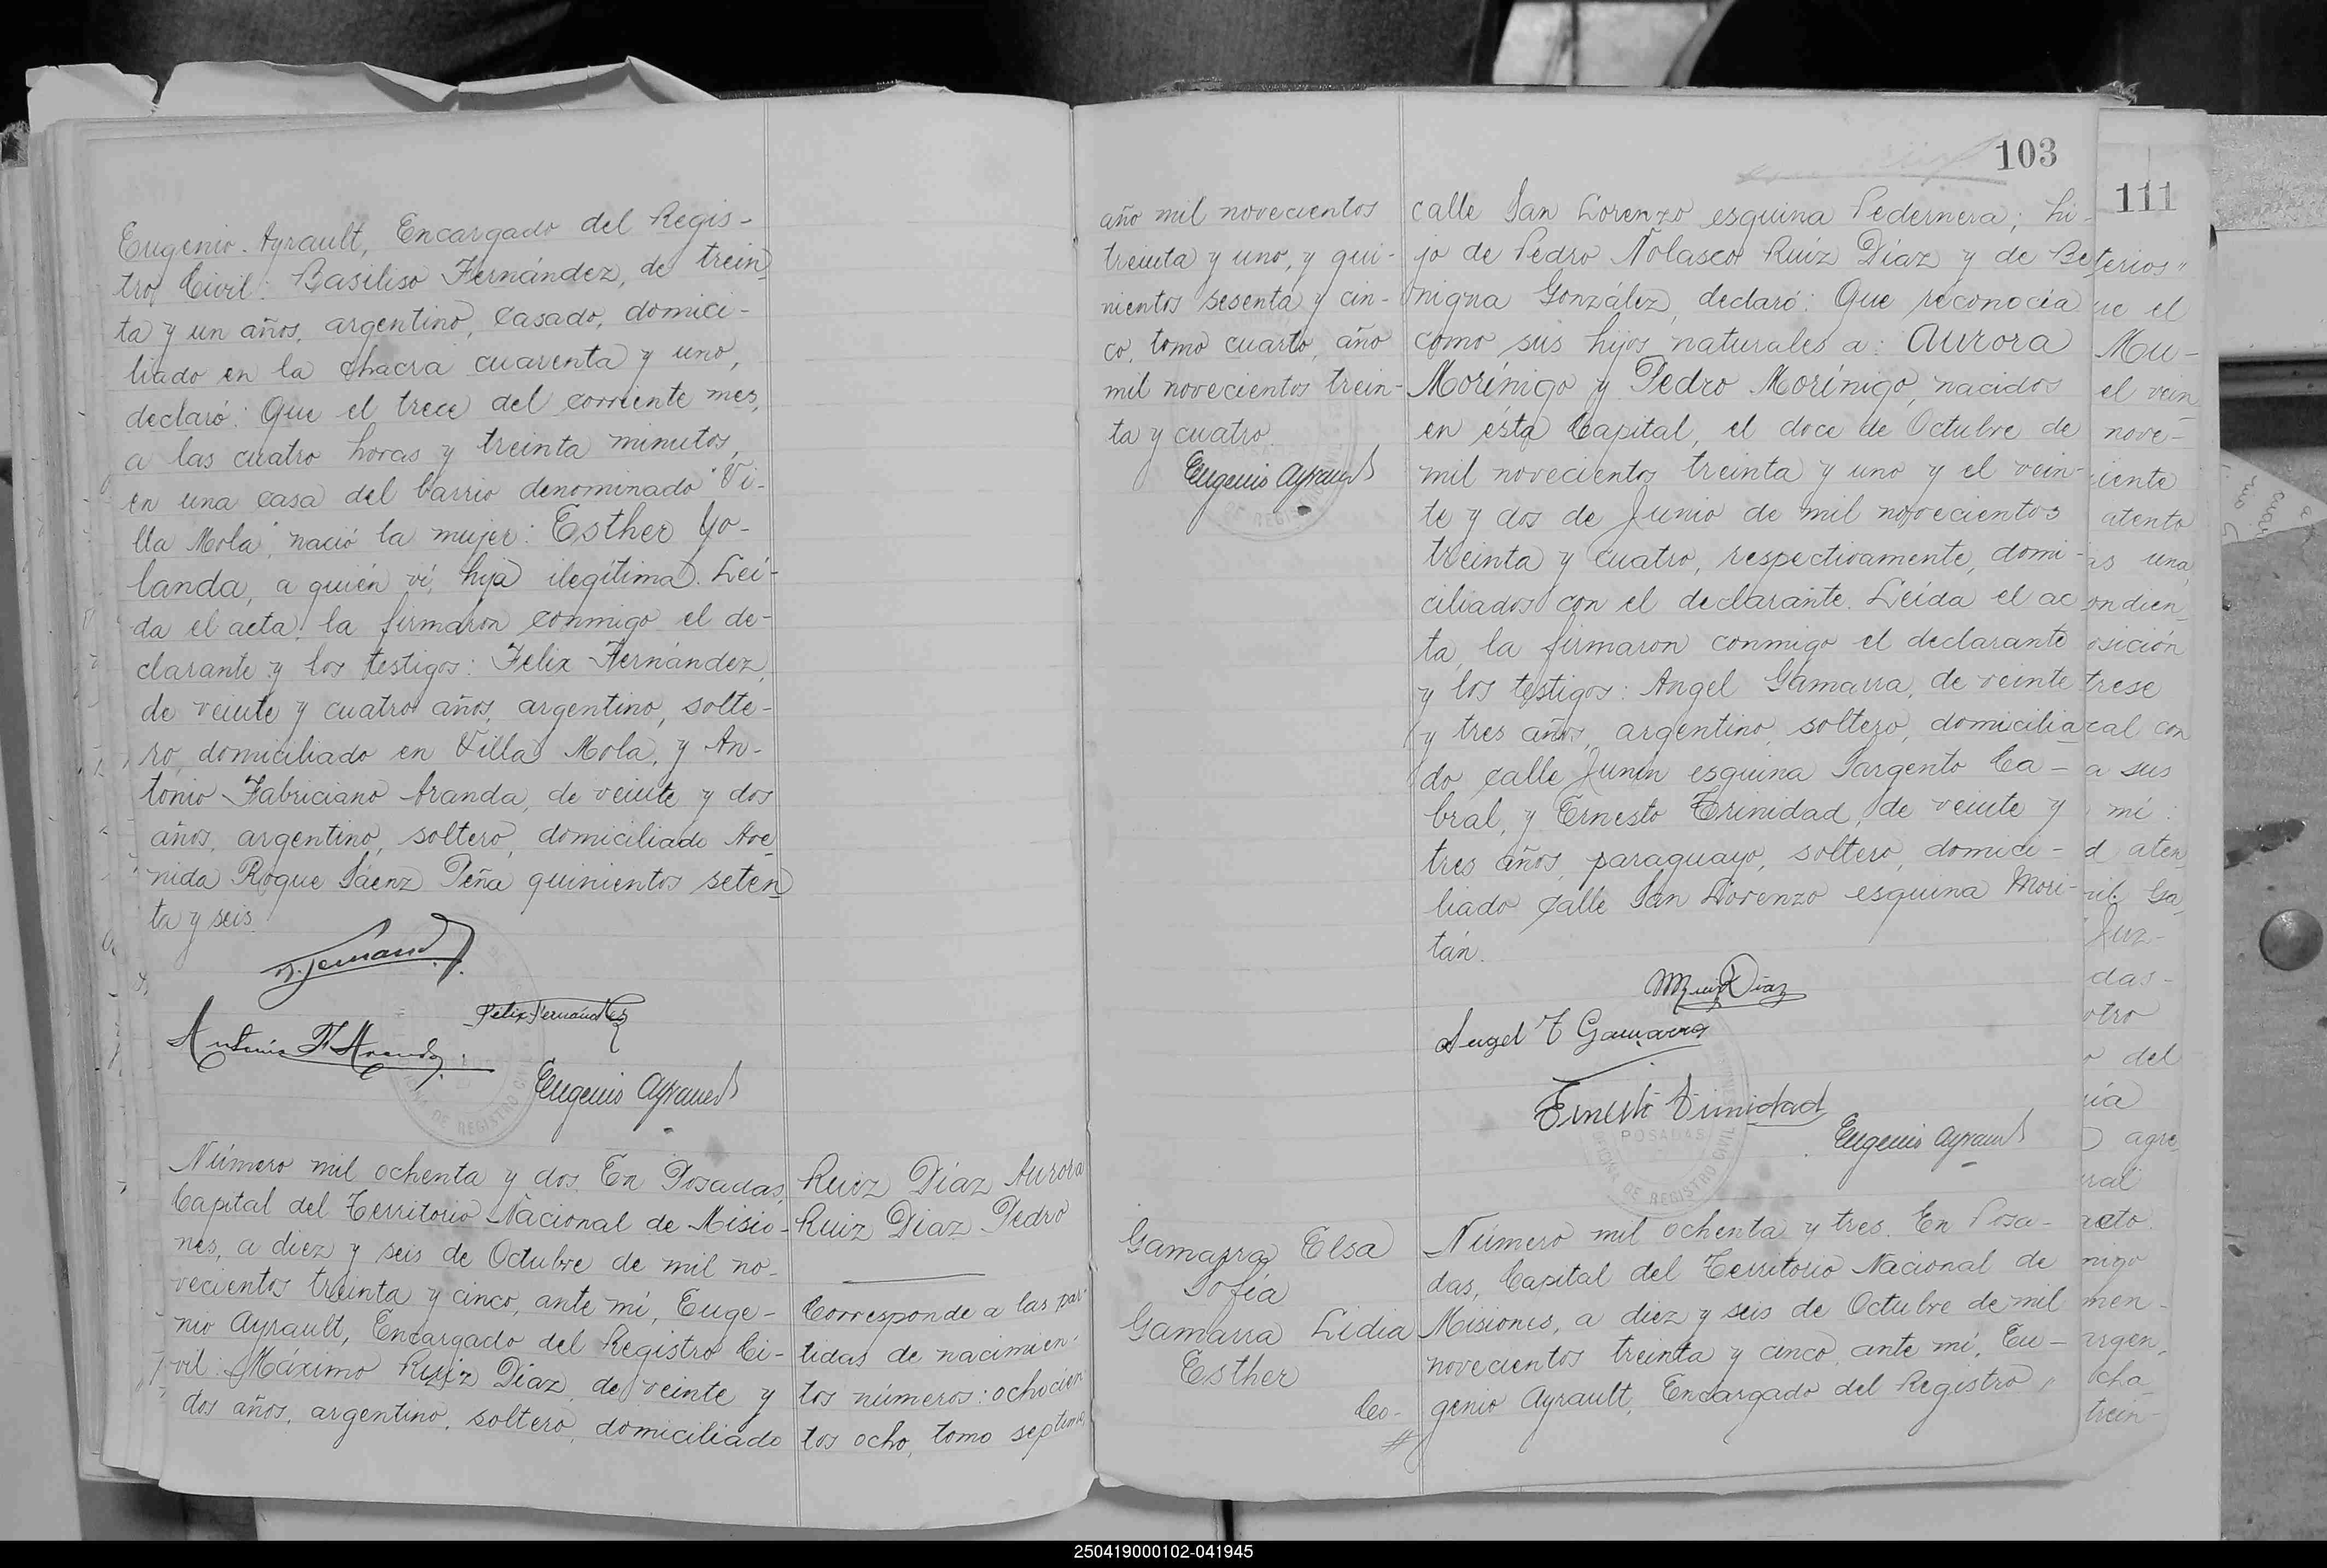 Eugenio Ayrault, Encargado del Regis-
tro Civil: Basiliso Fernández, de trein
ta y un años, argentino, casado, domici-
liado en la chacra cuarenta y uno,
declaró: Que el trece del corriente mes,
a las cuatro horas y treinta minutos,
en una casa del barrio denominado "Vi-
lla Mola", nació la mujer: Esther Yo-
landa, a quién ví, hija ilegítima. Leí-
da el acta, la firmaron conmigo el de-
clarante y los testigos: Felix Fernández,
de veinte y cuatro años, argentino, solte-
ro, domiciliado en Villa Mola, y An-
tonio Fabriciano Aranda, de veinte y dos
años, argentino, soltero, domiciliado Ave
nida Roque Sáenz Peña quinientos seten
ta y seis.
B. Fernand
Felix Fernandez
Antonio F. Aranda
Eugenio Ayrault
Número mil ochenta y dos. En Posadas,
Capital del Territorio Nacional de Misio-
nes, a diez y seis de Octubre de mil no-
vecientos treinta y cinco, ante mí, Euge-
nio Ayrault, Encargado del Registro Ci-
vil: Máximo Ruiz Díaz, de veinte y
dos años, argentino, soltero, domiciliado
Ruiz Díaz Aurora
Ruiz Díaz Pedro
Corresponde a las par-
tidas de nacimien-
tos números: ochocien
tos ocho, tomo septimo
103
año mil novecientos
treinta y uno, y qui-
nientos sesenta y cin-
co, tomo cuarto, año
mil novecientos trein-
ta y cuatro.
Eugenio Ayrault
calle San Lorenzo esquina Pedernera; hi-
jo de Pedro Nolasco Ruíz Díaz y de Be
nigna González, declaró: Que reconocía
como sus hijos naturales a: Aurora
Morínigo y Pedro Morínigo, nacidos
en ésta Capital, el doce de Octubre de
mil novecientos treinta y uno y el vein-
te y dos de Junio de mil novecientos
treinta y cuatro, respectivamente, domi-
ciliados con el declarante. Leída el ac
ta, la firmaron conmigo el declarante
y los testigos: Angel Gamarra, de veinte
y tres años, argentino, soltero, domicilia
do calle Junín esquina Sargento Ca-
bral, y Ernesto Trinidad, de veinte y
tres años, paraguayo, soltero, domici-
liado calle San Lorenzo esquina Mori-
tán.
M Ruiz Diaz
Angel T Gamarra
Ernesto Trinidad
POSADAS
OFICINA DE REGISTRO CIVIL
Eugenio Ayrault
Gamarra Elsa
Sofía
Gamarra Lidia
Esther
Co-
Número mil ochenta y tres. En Posa-
das, Capital del Territorio Nacional de
Misiones, a diez y seis de Octubre de mil
novecientos treinta y cinco, ante mí, Eu-
genio Ayrault, Encargado del Registro
111
terios"
ue el
Mu-
el vein
nove-
iente
atento
as una
ondien
osición
trese
cal con
a sus
mí:
d aten
nil. Ga
Juz-
das-
otro
o del
ía
agre
ral
acto.
nigo
men-
argen,
ocha
trein-
250419000102-041945